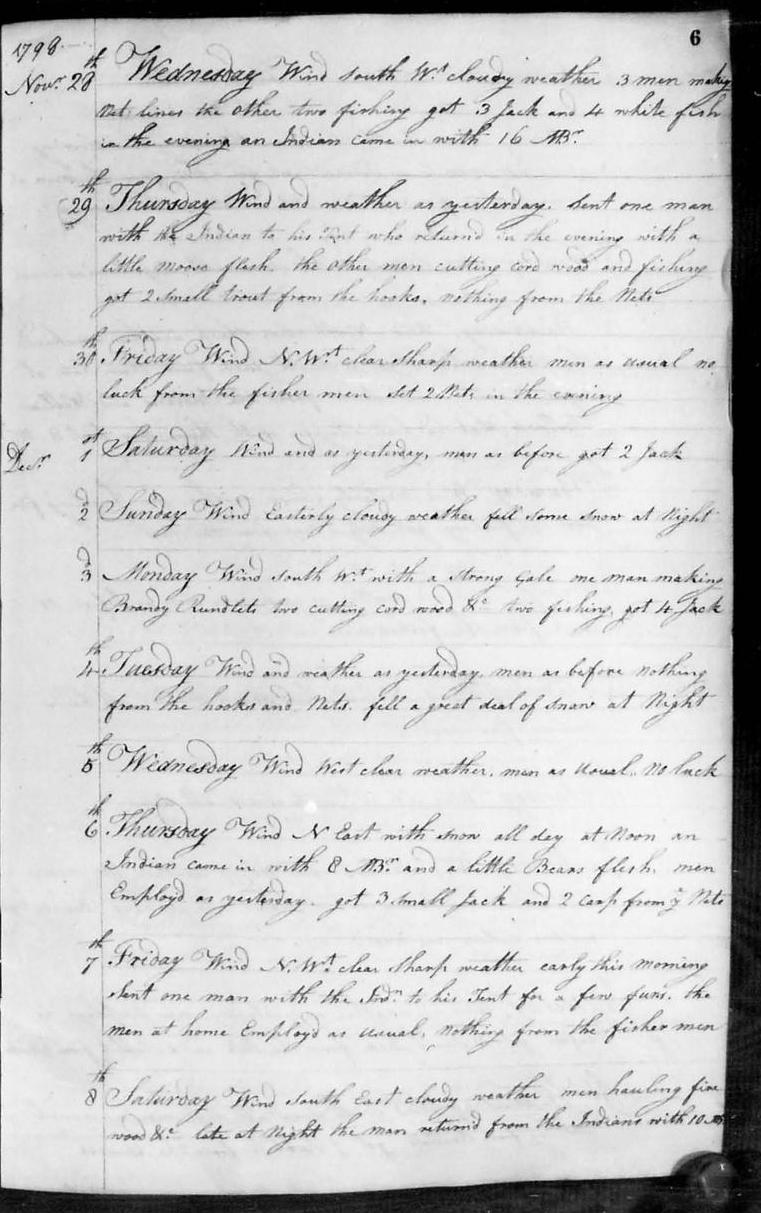 6
1798
Novr 28th Wednesday Wind South Wt cloudy weather 3 men making
Net lines the Other two fishing got 3 Jack and 4 white fish
in the evening an Indian came in with 16 MBr
29th Thursday Wind and weather as yesterday. Sent one man
with the Indian to his Tent who returnd in the evening with a
little moose flesh. the Other men cutting cord wood and fishing
got 2 small trout from the hooks, nothing from the Nets
30th Friday Wind N. Wt clear Sharp weather men as usual no
luck from the fisher men Set 2 Nets in the evening
Decr 1st Saturday Wind and as yesterday, men as before got 2 Jack
2d Sunday Wind Easterly cloudy weather fell some snow at Night
3d Monday Wind South Wt with a strong Gale one man making
Brandy Rundlets two cutting cord wood &c two fishing, got 4 Jack
4th Tuesday Wind and weather as yesterday. men as before nothing
from the hooks and Nets. fell a great deal of snow at Night
5th Wednesday Wind West clear weather. men as Usual. No luck
6th Thursday Wind N East with snow all day at Noon an
Indian came in with 8 MBr and a little Bears flesh. men
Employd as yesterday. got 3 small Jack and 2 Carp from ye Nets
7th Friday Wind N. Wt clear Sharp weather early this morning
Sent one man with the Indn to his Tent for a few furs. the
men at home Employd as usual. nothing from the fisher men
8th Saturday Wind South East cloudy weather men hauling fire
wood &c late at Night the man returnd from the Indians with 10 MBr